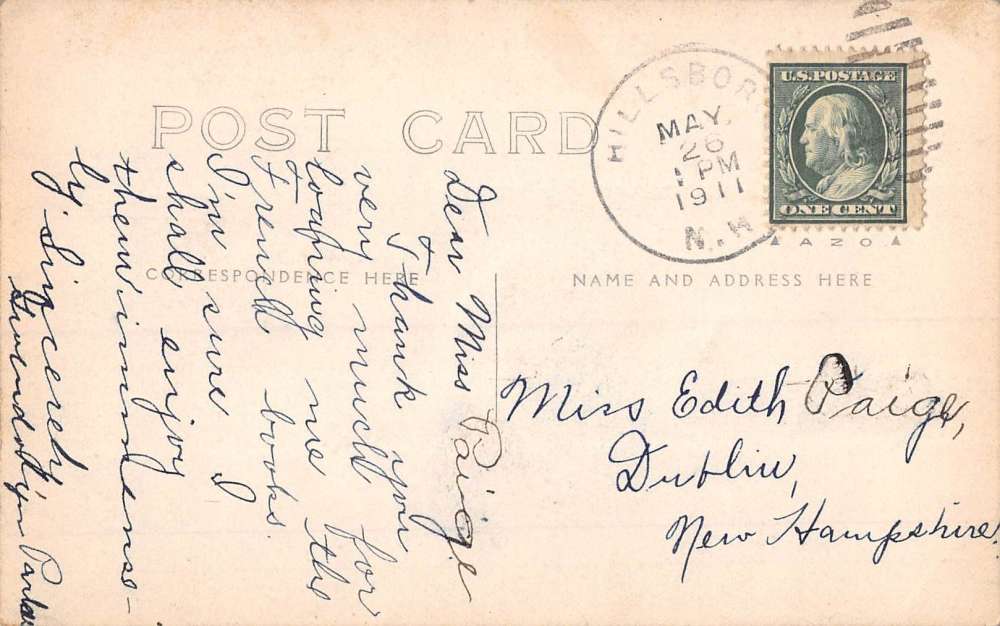 POST CARD
HILLSBOR
MAY.
26
1 PM
1911
N.H
U.S. POSTAGE
ONE CENT
AZO
CORRESPONDENCE HERE
NAME AND ADDRESS HERE
Dear Miss Paige
Thank you
very much for
loaning me the
French books.
I'm sure I
shall enjoy
them immense-
ly. Sincerely,
Gwendolyn
Miss Edith Paige,
Dublin,
New Hampshire.